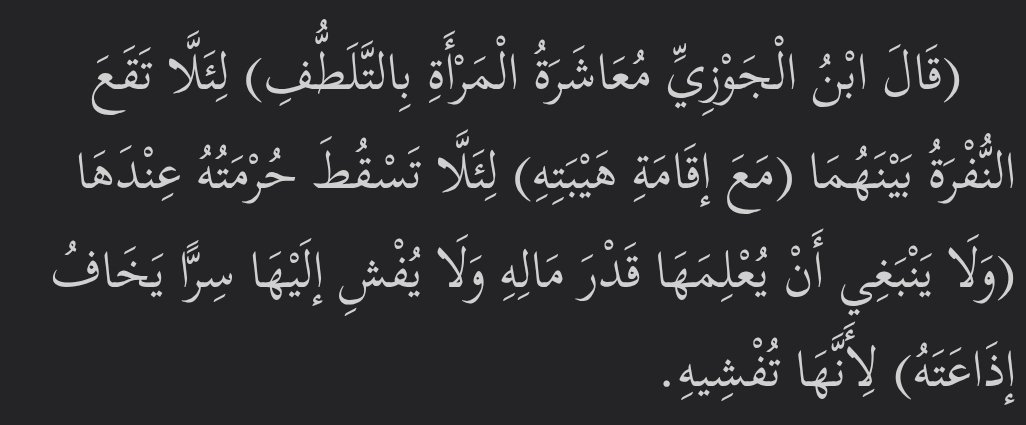 (قَالَ ابْنُ الْجَوْزِيِّ مُعَاشَرَةُ الْمَرْأَةِ بِالتَّلَطُّفِ) لِئَلَّا تَقَعَ
النُّفْرَةُ بَيْنَهُمَا (مَعَ إقَامَةِ هَيْبَتِهِ) لِئَلَّا تَسْقُطَ حُرْمَتُهُ عِنْدَهَا
(وَلَا يَنْبَغِي أَنْ يُعْلِمَهَا قَدْرَ مَالِهِ وَلَا يُفْشِ إلَيْهَا سِرًّا يَخَافُ
إذَاعَتَهُ) لِأَنَّهَا تُفْشِيهِ.